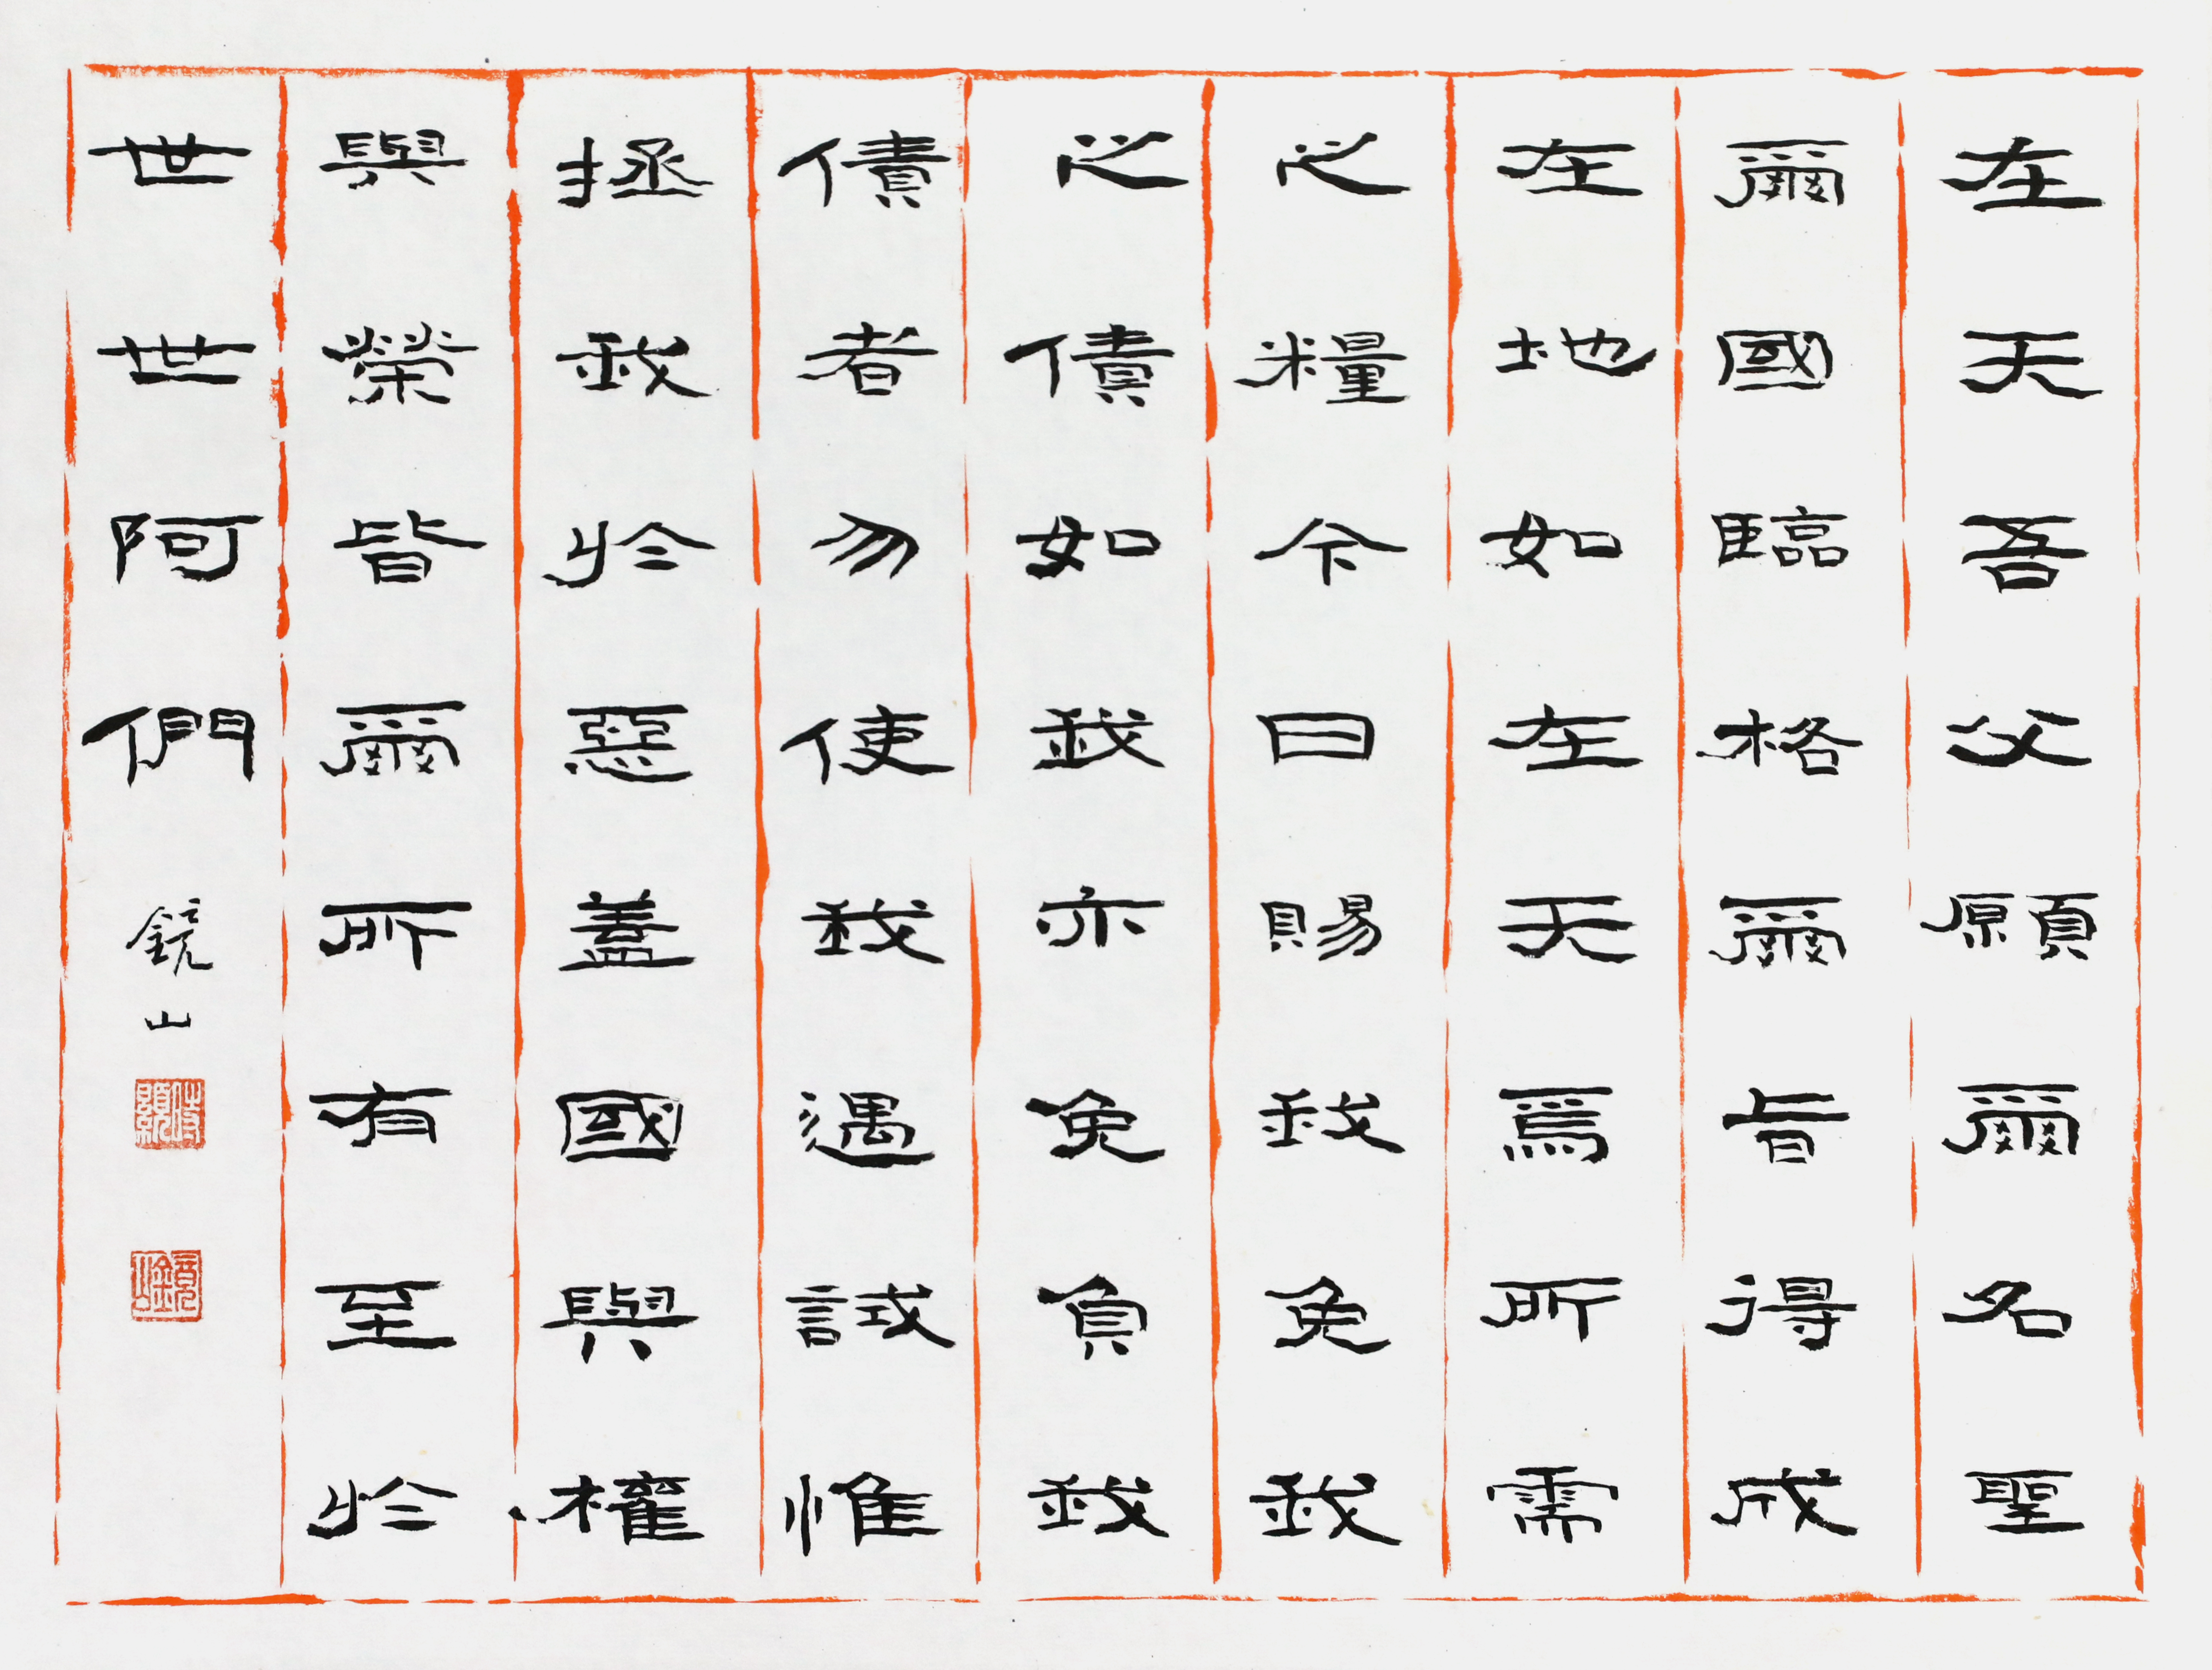 在天吾父願爾名聖
爾國臨格爾旨得成
在地如在天焉所需
之糧今日賜我免我
之債如我亦免負我
債者勿使我遇試惟
拯我於惡蓋國與權
與榮皆爾所有至於
世世阿們
鏡山